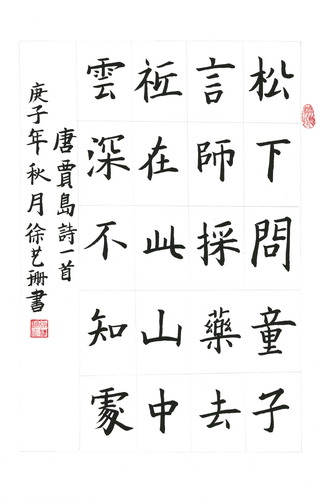 松下問童子
言師採藥去
祗在此山中
雲深不知處
唐賈島詩一首
庚子年秋月徐艺珊書